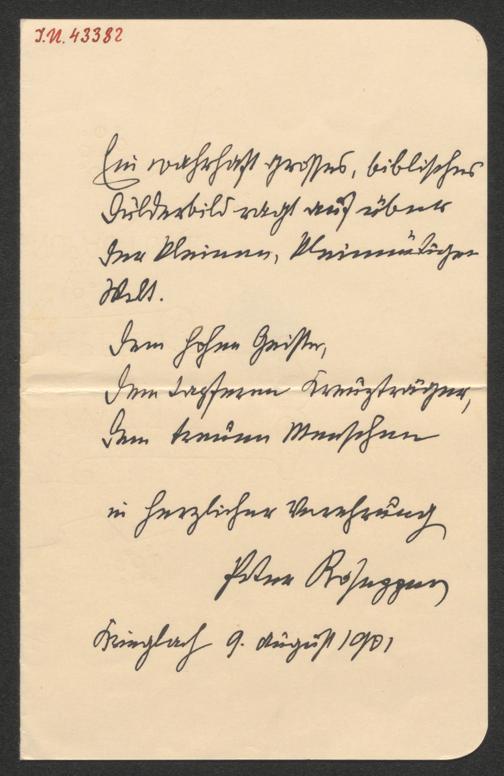 I.N. 43382
Ein wahrhaft grosses, biblisches
Dulderbild ragt auf über
der kleinen, kleinmütigen
Welt.
Dem hohen Geiste,
dem tapferen Kreuzträger,
dem treuen Menschen
in herzlicher Verehrung
Peter Rosegger
Krieglach 9. August 1901